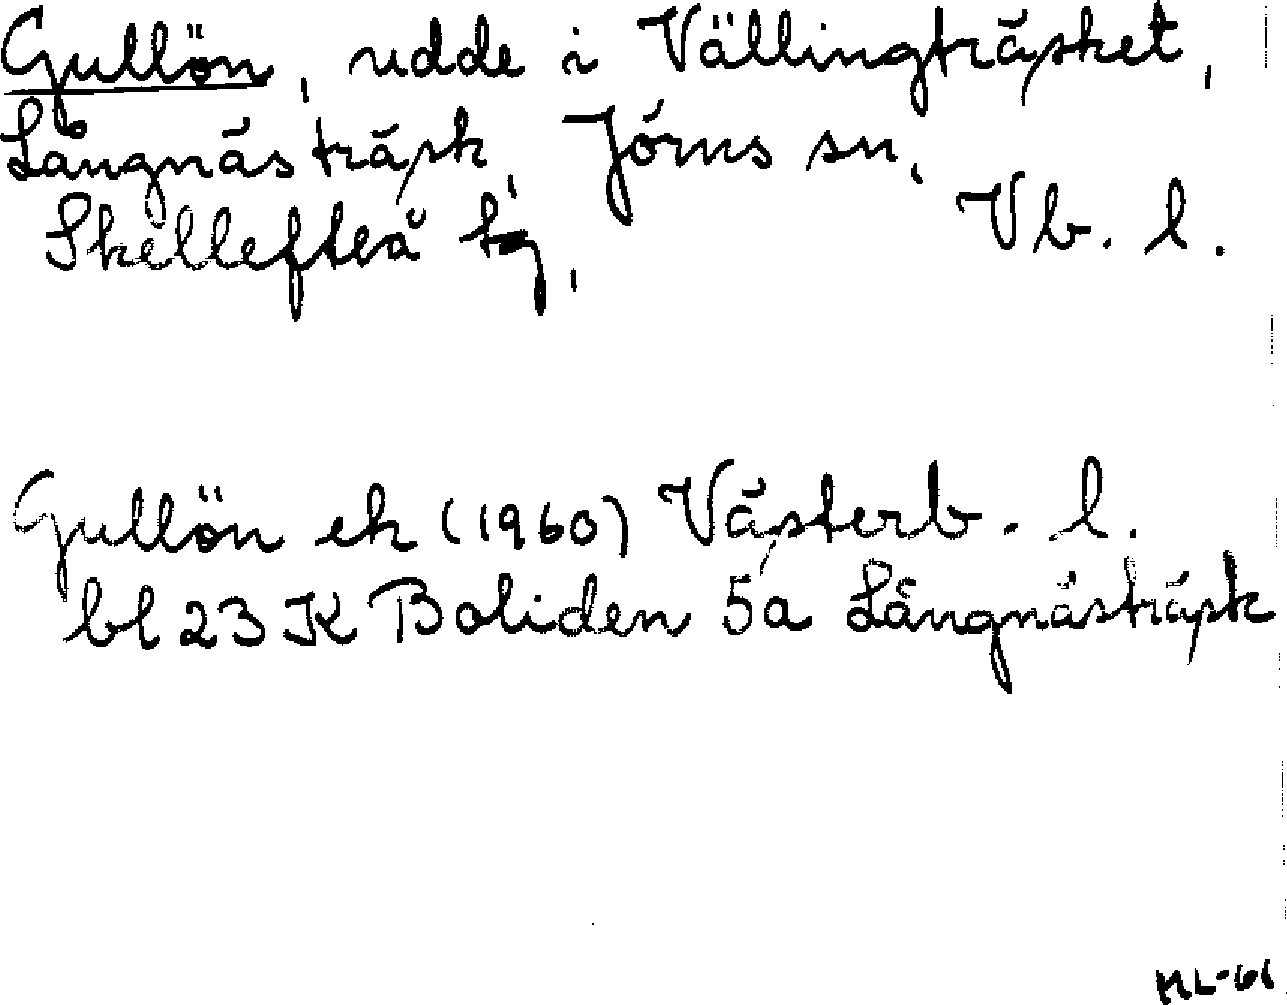 Gullön, udde i Vällingträsket,
Långnästräsk, Jörns sn,
Skellefteå tg, Vb. l.
Gullön ek (1960) Västerb. l.
bl 23 K Boliden 5a Långnästräsk
ML-61